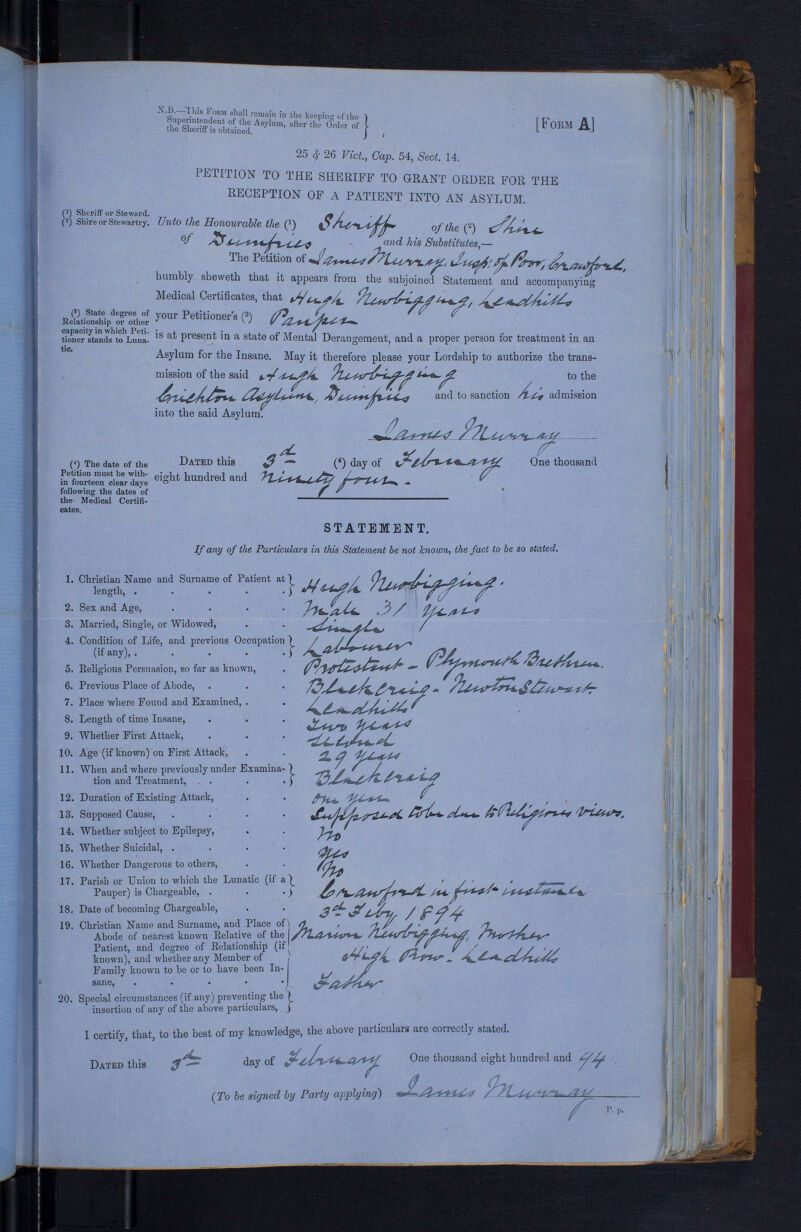 N.B.—This Form shall remain in the keeping of the
Superintendent of the Asylum, after the Order of
the Sheriff is obtained.
[Form A]
25 & 26 Vict., Cap. 54, Sect. 14.
PETITION TO THE SHERIFF TO GRANT ORDER FOR THE
RECEPTION OF A PATIENT INTO AN ASYLUM.
(1) Sheriff or Steward.
(2) Shire or Stewartry.
Unto the Honourable the (1) Sheriff of the (2) Shire
of Dumfries and his Substitutes,—
The Petition of James Murray, Insp. of Poor, Crawford,
humbly sheweth that it appears from the subjoined Statement and accompanying
Medical Certificates, that Hugh Newbigging, Leadhills
(3) State degree of
Relationship or other
capacity in which Peti-
tioner stands to Luna-
tic.
your Petitioner's (3) Pauper
is at present in a state of Mental Derangement, and a proper person for treatment in an
Asylum for the Insane. May it therefore please your Lordship to authorize the trans-
mission of the said Hugh Newbigging to the
Crichton Asylum, Dumfries and to sanction his admission
into the said Asylum.
James Murray
(4) The date of the
Petition must be with-
in fourteen clear days
following the dates of
the Medical Certifi-
cates.
Dated this 3d (4) day of February One thousand
eight hundred and Ninety four.
STATEMENT.
If any of the Particulars in this Statement be not known, the fact to be so stated.
1. Christian Name and Surname of Patient at
length, . . . . . Hugh Newbigging.
2. Sex and Age, . . . . Male 31 years
3. Married, Single, or Widowed, . . Single
4. Condition of Life, and previous Occupation
(if any), . . . . . Labourer
5. Religious Persuasion, so far as known, . Protestant - Plymouth Brethren.
6. Previous Place of Abode, . . . Blackcraig - Newton Stewart.
7. Place where Found and Examined, . . Leadhills
8. Length of time Insane, . . . Two years
9. Whether First Attack, . . . Second
10. Age (if known) on First Attack, . . 29 years
11. When and where previously under Examina-
tion and Treatment, . . . . Blackcraig
12. Duration of Existing Attack, . . One year
13. Supposed Cause, . . . . Supposed to be due to Religious views.
14. Whether subject to Epilepsy, . . No
15. Whether Suicidal, . . . . Yes
16. Whether Dangerous to others, . . No
17. Parish or Union to which the Lunatic (if a
Pauper) is Chargeable, . . . Crawford in first instance
18. Date of becoming Chargeable, . . 3d Feby 1894
19. Christian Name and Surname, and Place of
Abode of nearest known Relative of the
Patient, and degree of Relationship (if
known), and whether any Member of
Family known to be or to have been In-
sane, . . . . .
Marion Newbigging, Mother
High Row - Leadhills
Father
20. Special circumstances (if any) preventing the
insertion of any of the above particulars,
I certify, that, to the best of my knowledge, the above particulars are correctly stated.
Dated this 3d day of February One thousand eight hundred and 94.
(To be signed by Party applying) James Murray
P. p.